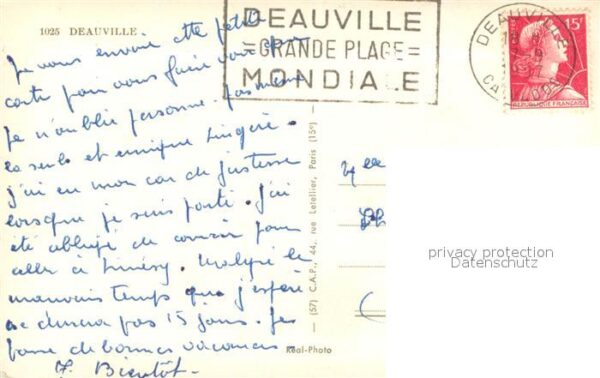 1025 DEAUVILLE
Je vous envoie cette petite
carte pour vous faire voir que
je n'oublie personne. pas même
la seule et unique Lingère.
j'ai eu mon car de justesse
lorsque je suis parti. J'ai
été obligé de courir pour
aller à Malgré le
mauvais temps que j'espère
ne durera pas 15 jours. Je
de bonnes vacances -
Bientôt -
DEAUVILLE
=GRANDE PLAGE=
MONDIALE
DEAUVILLE
CALVADOS
15F
REPUBLIQUE FRANCAISE
(57) C.A.P., 44, rue Letellier, Paris (15e)
Réal-Photo
privacy protection
Datenschutz